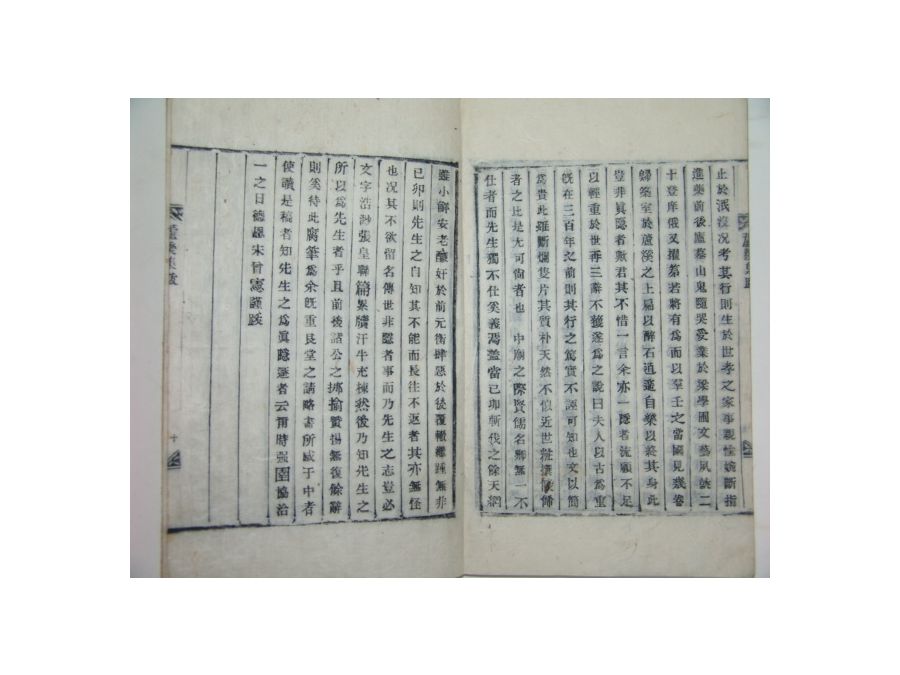 止於泯沒况考其行則生於世孝之家事親惟婉斷指
進藥前後廬墓山鬼隨哭受業於梁學圃文藝夙就二
十登庠俄又擢第若將有爲而以羣壬之當國見幾卷
歸築室於蘆溪之上扁以醉石逍遙自樂以終其身此
豈非眞隱者歟君其不惜一言余亦一隱者流顧不足
以輕重於世再三辭不獲遂爲之說曰夫人以古爲重
旣在三百年之前則其行之篤實不誣可知也文以簡
爲貴此雖斷爛隻片其質朴天然不似近世粧
者之比是尤可尙者也 中廟之際賢儒名卿無一不
仕者而先生獨不仕奚義焉蓋當己卯斬伐之餘天網
雖小解安老釀奸於前元衡肆惡於後覆轍難踵無非
己卯則先生之自知其不能而長往不返者其亦無怪
也况其不欲留名傳世非隱者事而乃先生之志豈必
文字浩渺張皇聯篇累牘汗牛充棟然後乃知先生之
所以爲先生者乎且前後諸公之揶揄贊揚無復餘辭
則奚待此腐筆爲余旣重艮堂之請略書所感于中者
使讀是稿者知先生之爲眞隱逐者云爾時强圉協洽
一之日德恩宋曾憲謹跋
十